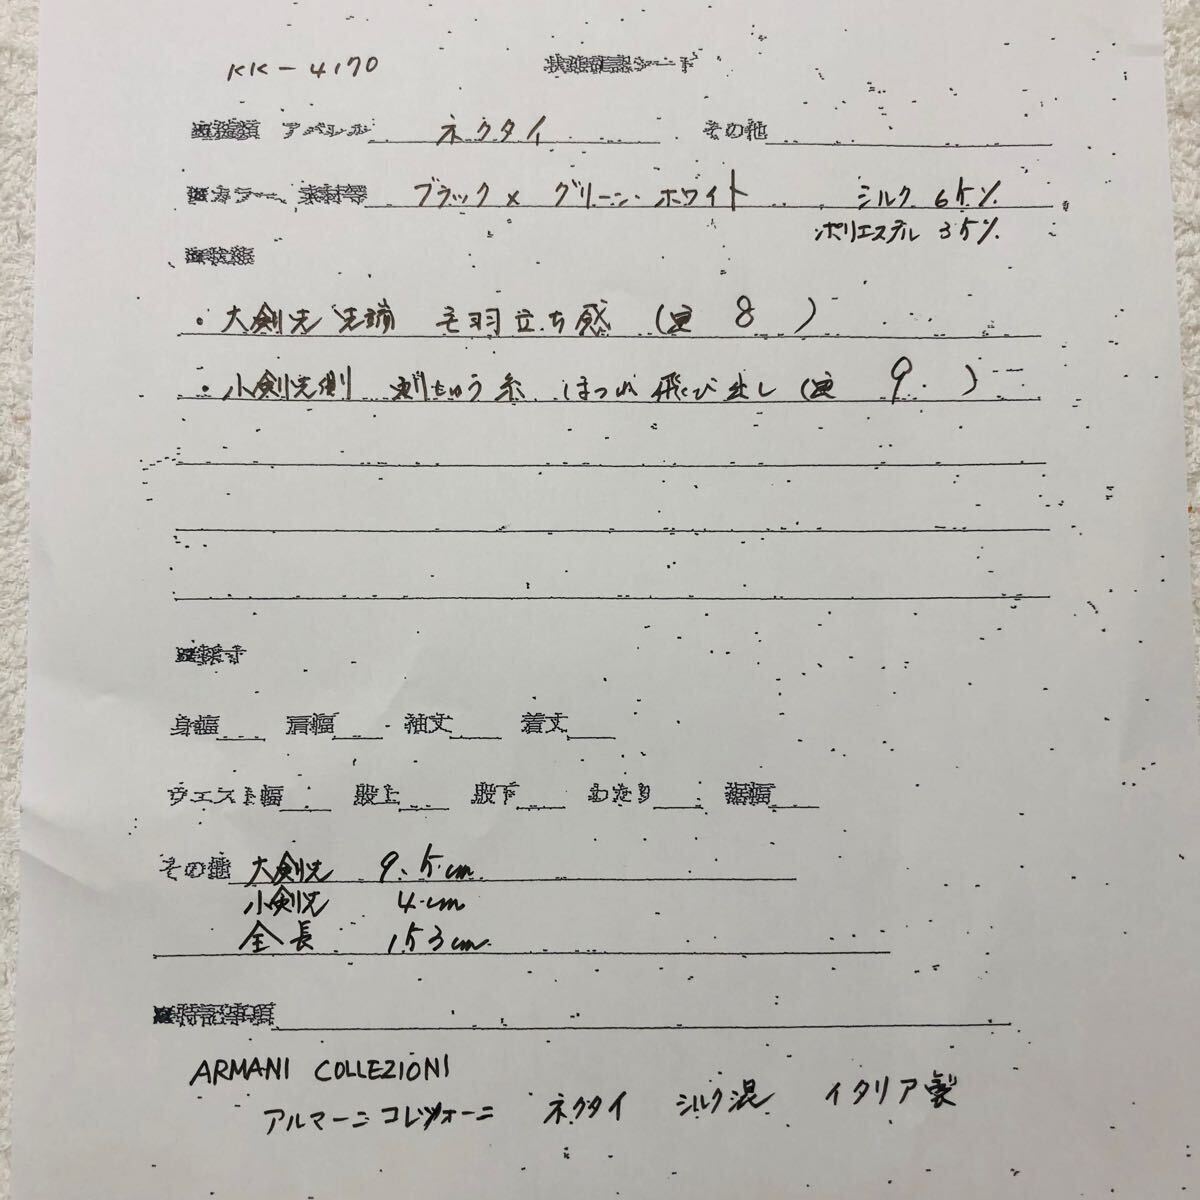 KK-4170 状態確認シート
■種類 アパレル ネクタイ その他
■カラー、素材等 ブラック×グリーン・ホワイト シルク 65%
ポリエステル 35%
■状態
・大剣先 先端 毛羽立ち感 (図 8 )
・小剣先側 刺しゅう糸 ほつれ 飛び出し (図 9. )
■採寸
身幅 肩幅 袖丈 着丈
ウエスト幅 股上 股下 わたり 裾幅
その他 大剣先 9.5cm
小剣先 4cm
全長 153cm
■特記事項
ARMANI COLLEZIONI
アルマーニコレツォーニ ネクタイ シルク混 イタリア製